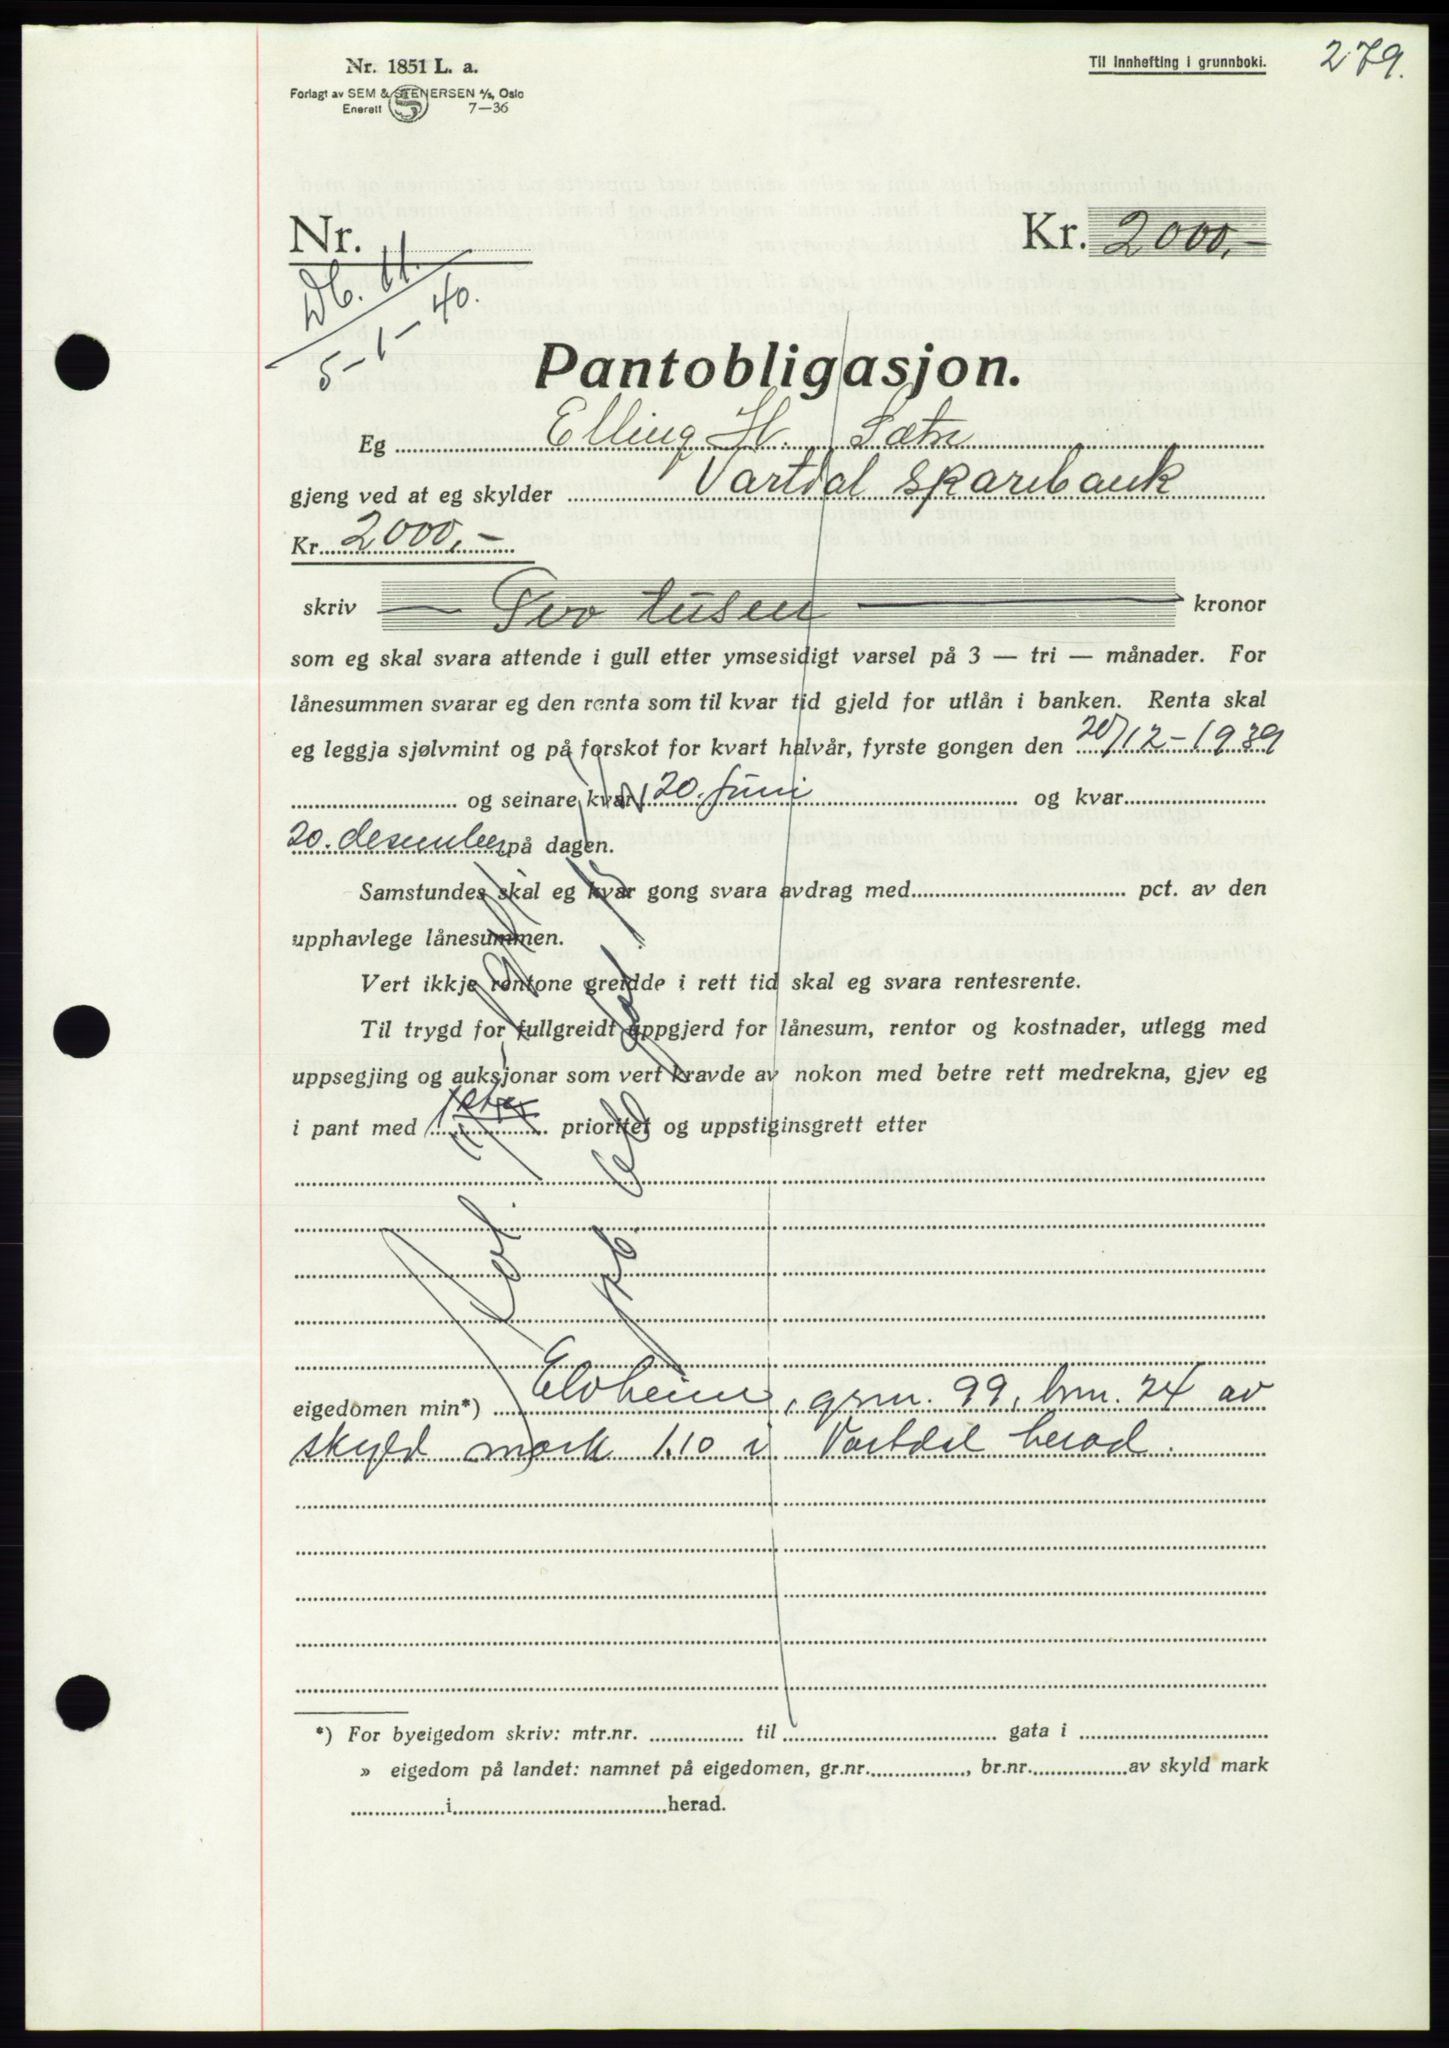 279.
Nr. 1851 L. a.
Til innhefting i grunnboki.
Forlagt av SEM & STENERSEN A/S, Oslo
Enerett 7—36
Nr.
Kr. 2000,-
Db. 11.
5-1-40.
Pantobligasjon.
Eg Elling H. Sætre
gjeng ved at eg skylder Vartdal sparebank
Kr. 2000,-
skriv — Two tusen — kronor
som eg skal svara attende i gull etter ymsesidigt varsel på 3 — tri — månader. For
lånesummen svarar eg den renta som til kvar tid gjeld for utlån i banken. Renta skal
eg leggja sjølvmint og på forskot for kvart halvår, fyrste gongen den 20/12-1939
og seinare kvar 20. juni og kvar
20. desember på dagen.
Samstundes skal eg kvar gong svara avdrag med pct. av den
upphavlege lånesummen.
Vert ikkje rentone greidde i rett tid skal eg svara rentesrente.
Til trygd for fullgreidt uppgjerd for lånesum, rentor og kostnader, utlegg med
uppsegjing og auksjonar som vert kravde av nokon med betre rett medrekna, gjev eg
i pant med prioritet og uppstiginsgrett etter
eigedomen min*) Elvheim, grnr. 99, brnr. 24 av
skyld mark 1.10 i Vartdal herad.
*) For byeigedom skriv: mtr.nr. til gata i
» eigedom på landet: namnet på eigedomen, gr.nr. , br.nr. av skyld mark
i herad.